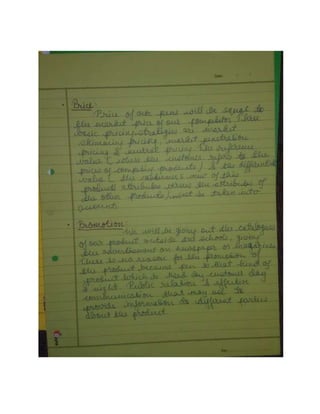 Date
• Price:
Price of our pens will be equal to
the market price of our competitors. There
basic pricing strategies are market
skimming pricing, market penetration
pricing & neutral pricing. The reference
value (where the customer refers to the
prices of competing products) & the differential
value (the customer's view of this
products attributes versus the attributes of
the other products) must be taken into
account.
• Promotion:
We will be giving out the catalogues
of our product outside the schools, giving
the advertisement on newspaper or magazines.
There is no reason for the promotion of
the product because pen is that kind of
product which is used by customer day
& night. Public relation is effective
communication that may use to
provide information to different parties
about the product.